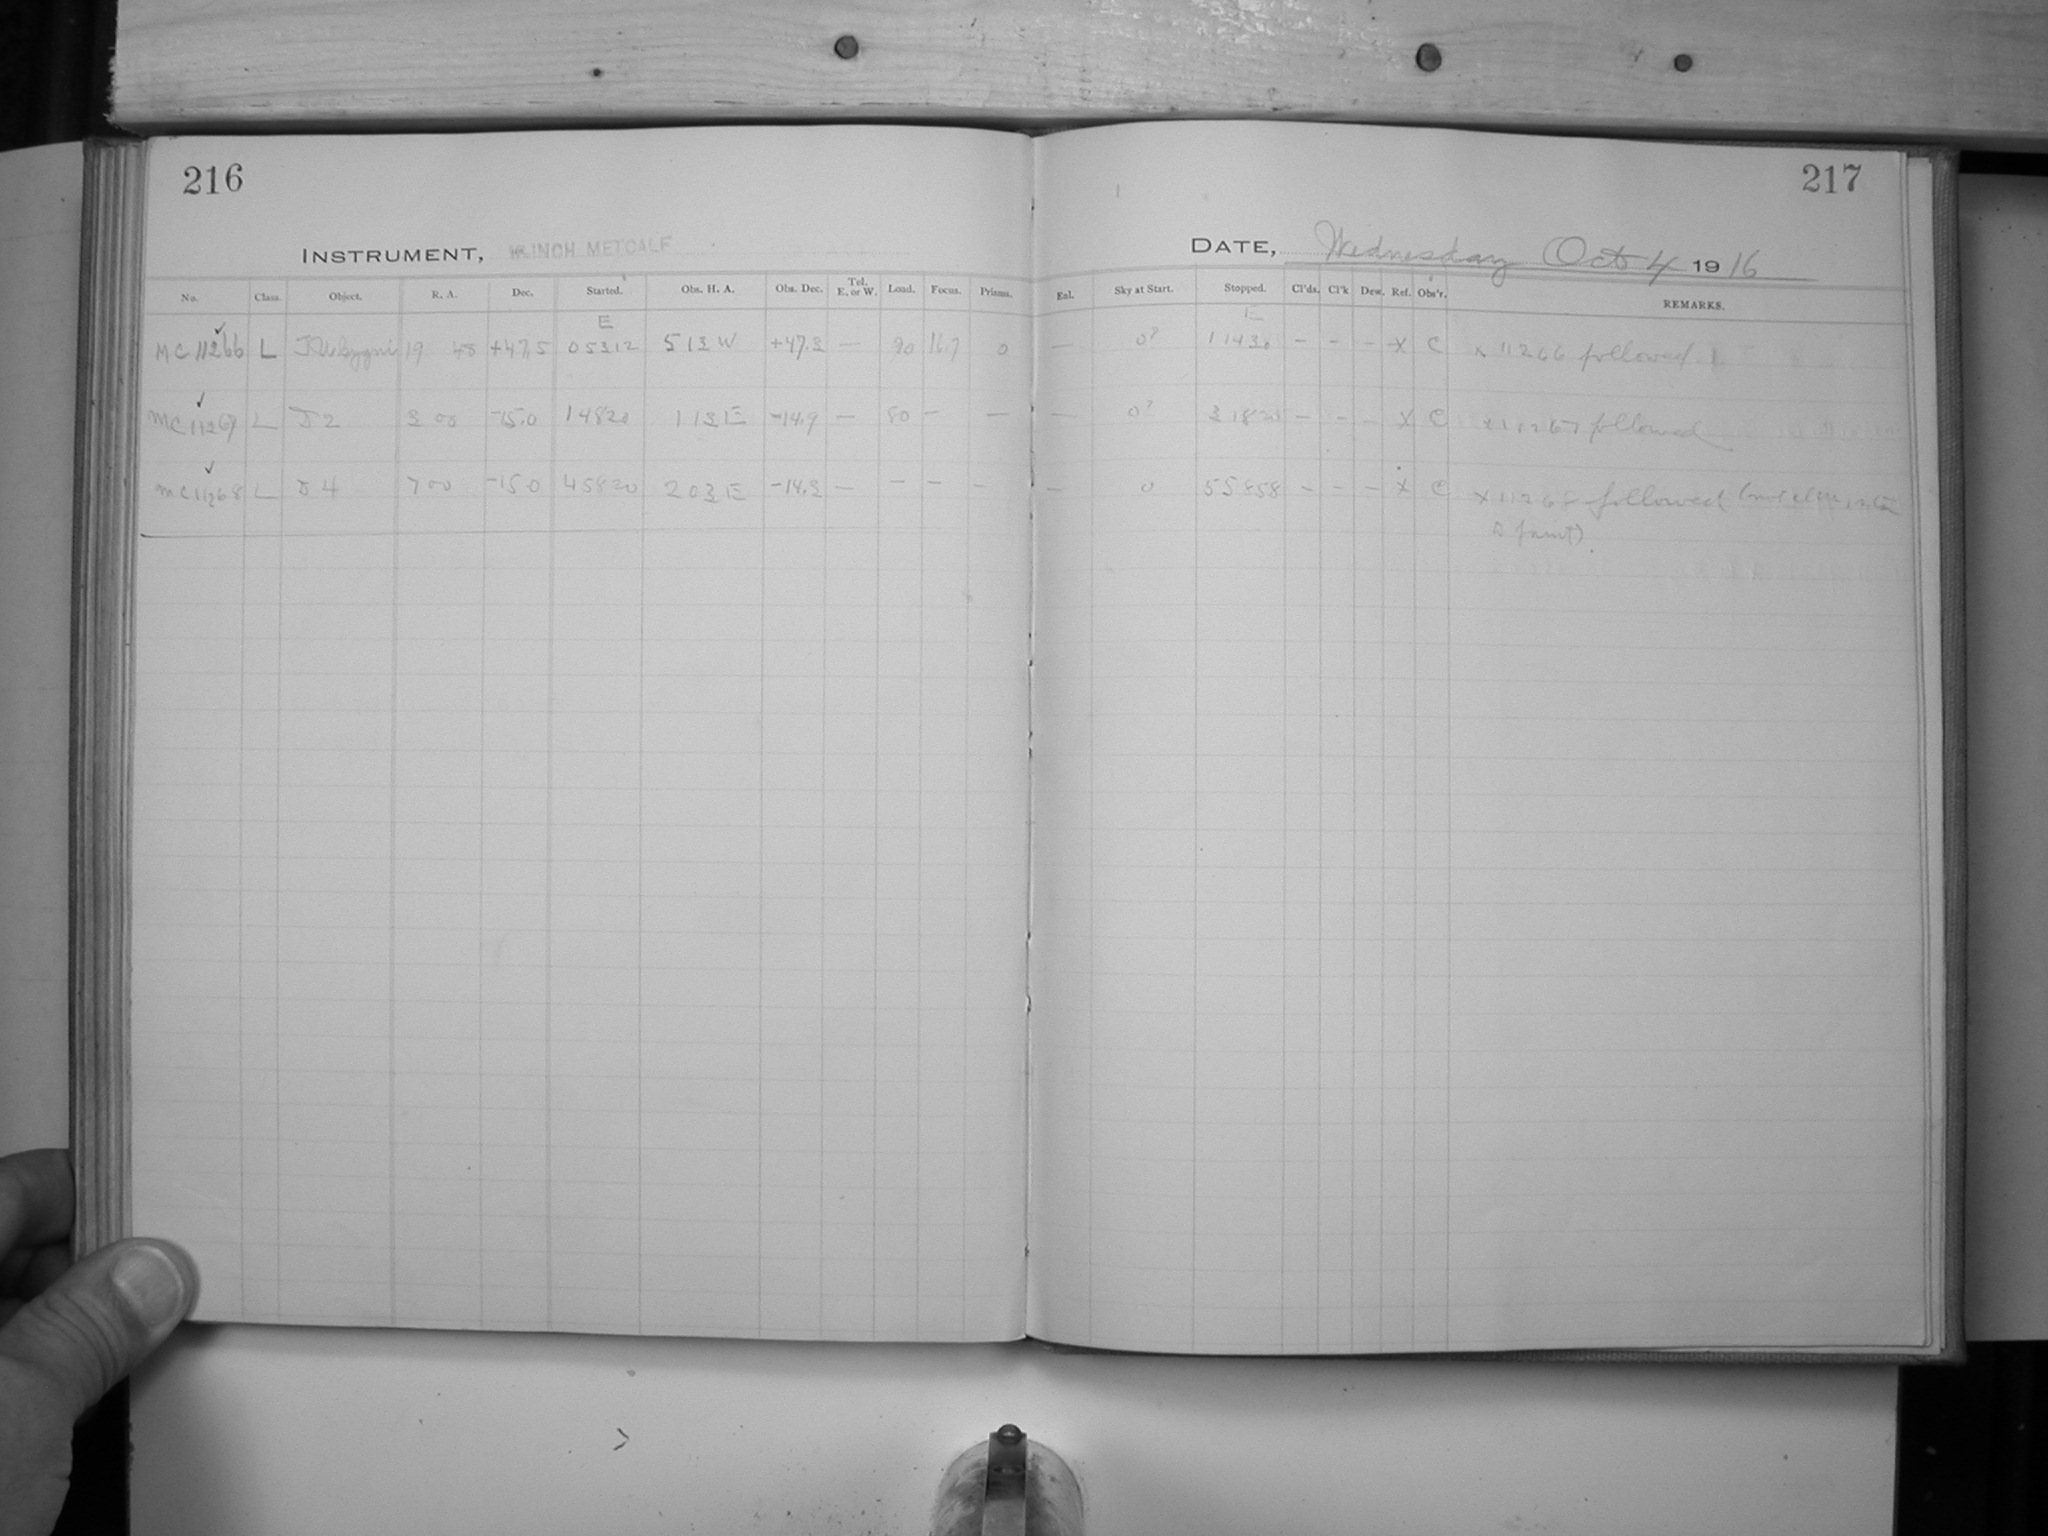 216
217
INSTRUMENT, INCH METCALF
DATE, Wednesday Oct 4 1916
No. Class. Object. R. A. Dec. Started. Obs. H. A. Obs. Dec. Tel. E. or W. Load. Focus. Prisms. Enl. Sky at Start. Stopped. Cl'ds. Cl'k Dew. Ref. Obs'r. REMARKS.
E E
MC 11266 L 19 48 +47.5 05312 513 W +47.3 — 80 16.7 0 — 0? 11430 – – – X C x 11266 followed
MC11267 L J 2 3 00 -15.0 14820 113 E -14.9 — 80 – — — 0? 31820 – – – X C x 11267 followed
MC11268 L J 4 7 00 -15.0 45820 203 E -14.3 — – – – – 0 55858 – – – X C x 11268 followed
faint)